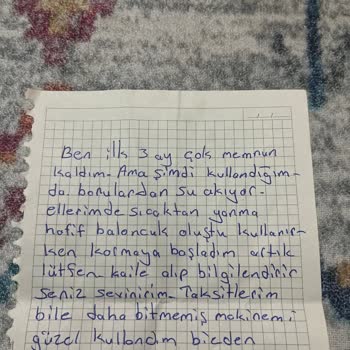 Ben ilk 3 ay çok memnun
kaldım. Ama şimdi kullandığım-
da borulardan su akıyor.
ellerimde sıcaktan yanma
hafif baloncuk oluştu kullanır-
ken kormaya başladım artık
lütfen kaile alıp bilgilendirir
seniz sevinirim. Taksitlerim
bile daha bitmemiş makinemi
güzel kullandım birden